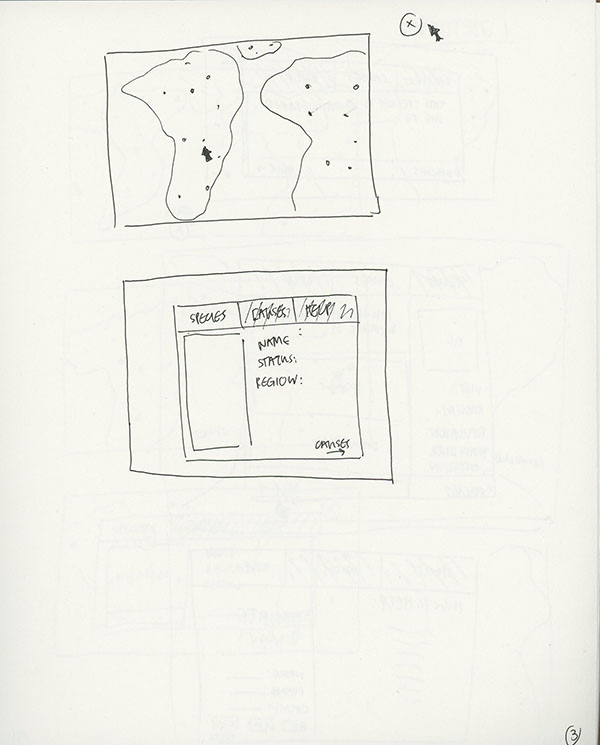 x
SPECIES CAUSES HELP
NAME :
STATUS:
REGION:
CAUSES
3